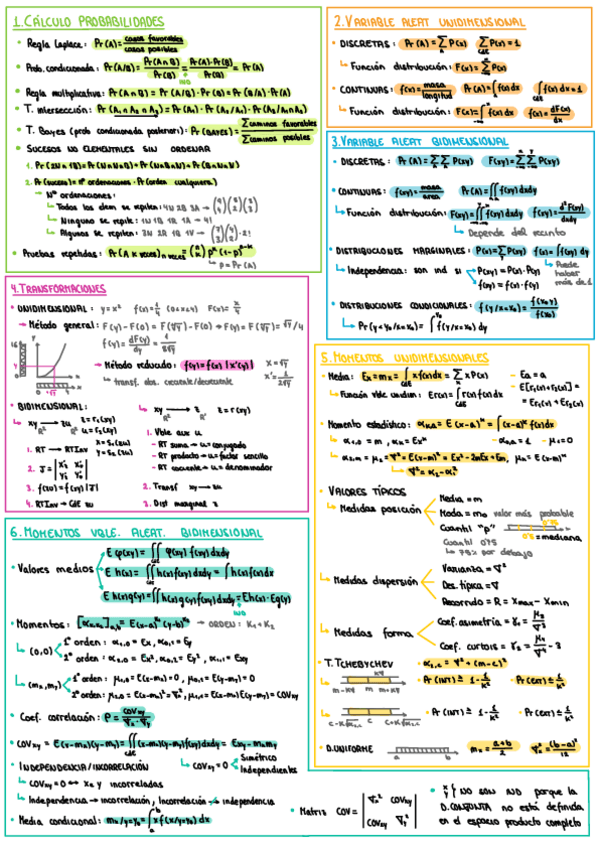 1. CÁLCULO PROBABILIDADES
• Regla Laplace: Pr(A) = casos favorables / casos posibles
• Prob. condicionada: Pr(A/B) = Pr(A∩B)/Pr(B) = Pr(A)·Pr(B)/Pr(B) = Pr(A)
IND
• Regla multiplicativa: Pr(A∩B) = Pr(A/B)·Pr(B) = Pr(B/A)·Pr(A)
• T. intersección: Pr(A₁∩A₂∩A₃) = Pr(A₁)·Pr(A₂/A₁)·Pr(A₃/A₁∩A₂)
• T. Bayes (prob condicionada posteriori): Pr(BAYES) = Σcaminos favorables / Σcaminos posibles
• SUCESOS NO ELEMENTALES SIN ORDENAR
2. Pr(suceso) = nº ordenaciones · Pr(orden cualquiera)
↳ Nº ordenaciones:
↳ Todos los elem se repiten: 4N 2B 3A →
↳ Ninguno se repite: 1N 1B 1R 1A → 4!
↳ Algunos se repiten: 3N 2R 1B 1V →
• Pruebas repetidas: Pr(A k veces) n veces = (n k) pᵏ (1-p)ⁿ⁻ᵏ
↳ p = Pr(A)
2. VARIABLE ALEAT UNIDIMENSIONAL
• DISCRETAS: Pr(A) = Σ P(x) Σ P(x) = 1
↳ Función distribución: F(x) = Σ P(x)
• CONTINUAS: f(x) = masa/longitud Pr(A) = ∫f(x)dx ∫f(x)dx = 1
↳ Función distribución: F(x) = ∫f(x)dx f(x) = dF(x)/dx
3. VARIABLE ALEAT BIDIMENSIONAL
• DISCRETAS: Pr(A) = ΣΣ P(xy) F(xy) = ΣΣ P(xy)
• CONTINUAS: f(xy) = masa/area Pr(A) = ∫∫f(xy)dxdy
↳ Función distribución: F(xy) = ∫∫f(xy)dxdy f(xy) = d²F(xy)/dxdy
↳ Depende del recinto
• DISTRIBUCIONES MARGINALES: P(x) = Σ P(xy) f(x) = ∫f(xy)dy
↳ Independencia: son ind si P(xy) = P(x)·P(y)
f(xy) = f(x)·f(y)
↳ Puede haber más de 1
• DISTRIBUCIONES CONDICIONALES: f(y/x=x₀) = f(x₀y)/f(x₀)
↳ Pr(y<y₀/x=x₀) = ∫f(y/x₀)dy
4. TRANSFORMACIONES
• UNIDIMENSIONAL: y = x² f(x) = 1/4 (0<x<4) F(x) = x/4
↳ Método general: F(y) - F(0) = F(√y) - F(0) → F(y) = F(√y) = √y/4
f(y) = dF(y)/dy = 1/8√y
↳ Método reducido: f(y) = f(x) |x'(y)| x = √y
x' = 1/2√y
↳ transf. obs. creciente/decreciente
• BIDIMENSIONAL:
xy → zu z = r₁(xy)
R² R² u = r₂(xy)
1. RT → RTInv x = s₁(zu)
y = s₂(zu)
3. f(zu) = f(xy) |J|
4. RTInv → CdE zu
↳ xy → z z = r(xy)
1. Vble aux u
↳ RT suma → u = conjugado
↳ RT producto → u = factor sencillo
↳ RT cociente → u = denominador
2. Transf xy → zu
3. Dist marginal z
5. MOMENTOS UNIDIMENSIONALES
• Media: Ex = mx = ∫xf(x)dx = Σ x P(x) – Ea = a
↳ Función vble aleatoria: Er(x) = ∫r(x)f(x)dx – E[r₁(x)+r₂(x)] =
= Er₁(x) + Er₂(x)
↳ α₁,₀ = m, αₖ = Exᵏ – α₀ = 1 – μ₁ = 0
↳ ∇² = α₂ - α₁²
• VALORES TÍPICOS
↳ Medidas posición
Media = m
Moda = mo valor más probable
Cuantil "p"
0'5 = mediana
Cuantil 0'75
↳ 75% por debajo
↳ Medidas dispersión
Varianza = ∇²
Des. típica = ∇
Recorrido = R = xmax - xmin
↳ Medidas forma
Coef. asimetría = γ₁ = μ₃/∇³
Coef. curtosis = γ₂ = μ₄/∇⁴ - 3
• T. TCHEBYCHEV α₂,c = ∇² + (m-c)²
m-k∇ m m+k∇ Pr(INT) ≥ 1 - 1/k² Pr(EXT) ≤ 1/k²
c Pr(INT) ≥ 1 - 1/k² Pr(EXT) ≤ 1/k²
• D. UNIFORME a b mx = a+b/2 ∇x² = (b-a)²/12
6. MOMENTOS VBLE. ALEAT. BIDIMENSIONAL
• Valores medios
E φ(xy) = ∫∫ φ(xy) f(xy)dxdy
E h(x) = ∫∫ h(x)f(xy)dxdy = ∫h(x)f(x)dx
E h(x)g(y) = ∫∫h(x)g(y)f(xy)dxdy = Eh(x)·Eg(y)
IND
• Momentos: = E(x-a)ᵏ¹(y-b)ᵏ² → ORDEN: k₁+k₂
↳ (0,0)
1º orden: α₁,₀ = Ex, α₀,₁ = Ey
2º orden: α₂,₀ = Ex², α₀,₂ = Ey², α₁,₁ = Exy
↳ (mx,my)
1º orden: μ₁,₀ = E(x-mx) = 0, μ₀,₁ = E(y-my) = 0
2º orden: μ₂,₀ = E(x-mx)² = ∇x², μ₁,₁ = E(x-mx)E(y-my) = COVxy
• Coef. correlación: ρ = COVxy/∇x·∇y
• COVxy = E(x-mx)(y-my) = ∫∫(x-mx)(y-my)f(xy)dxdy = Exy - mxmy
• INDEPENDENCIA/INCORRELACIÓN
↳ COVxy = 0
Simétrico
Independientes
↳ COVxy = 0 ↔ x e y incorreladas
↳ Independencia → incorrelación, Incorrelación → independencia
• Media condicional: mx/y=y₀ = ∫x f(x/y=y₀) dx
• Matriz COV = | ∇x² COVxy |
| COVxy ∇y² |
• x y } NO SON IND porque la
D. CONJUNTA no está definida
en el espacio producto completo